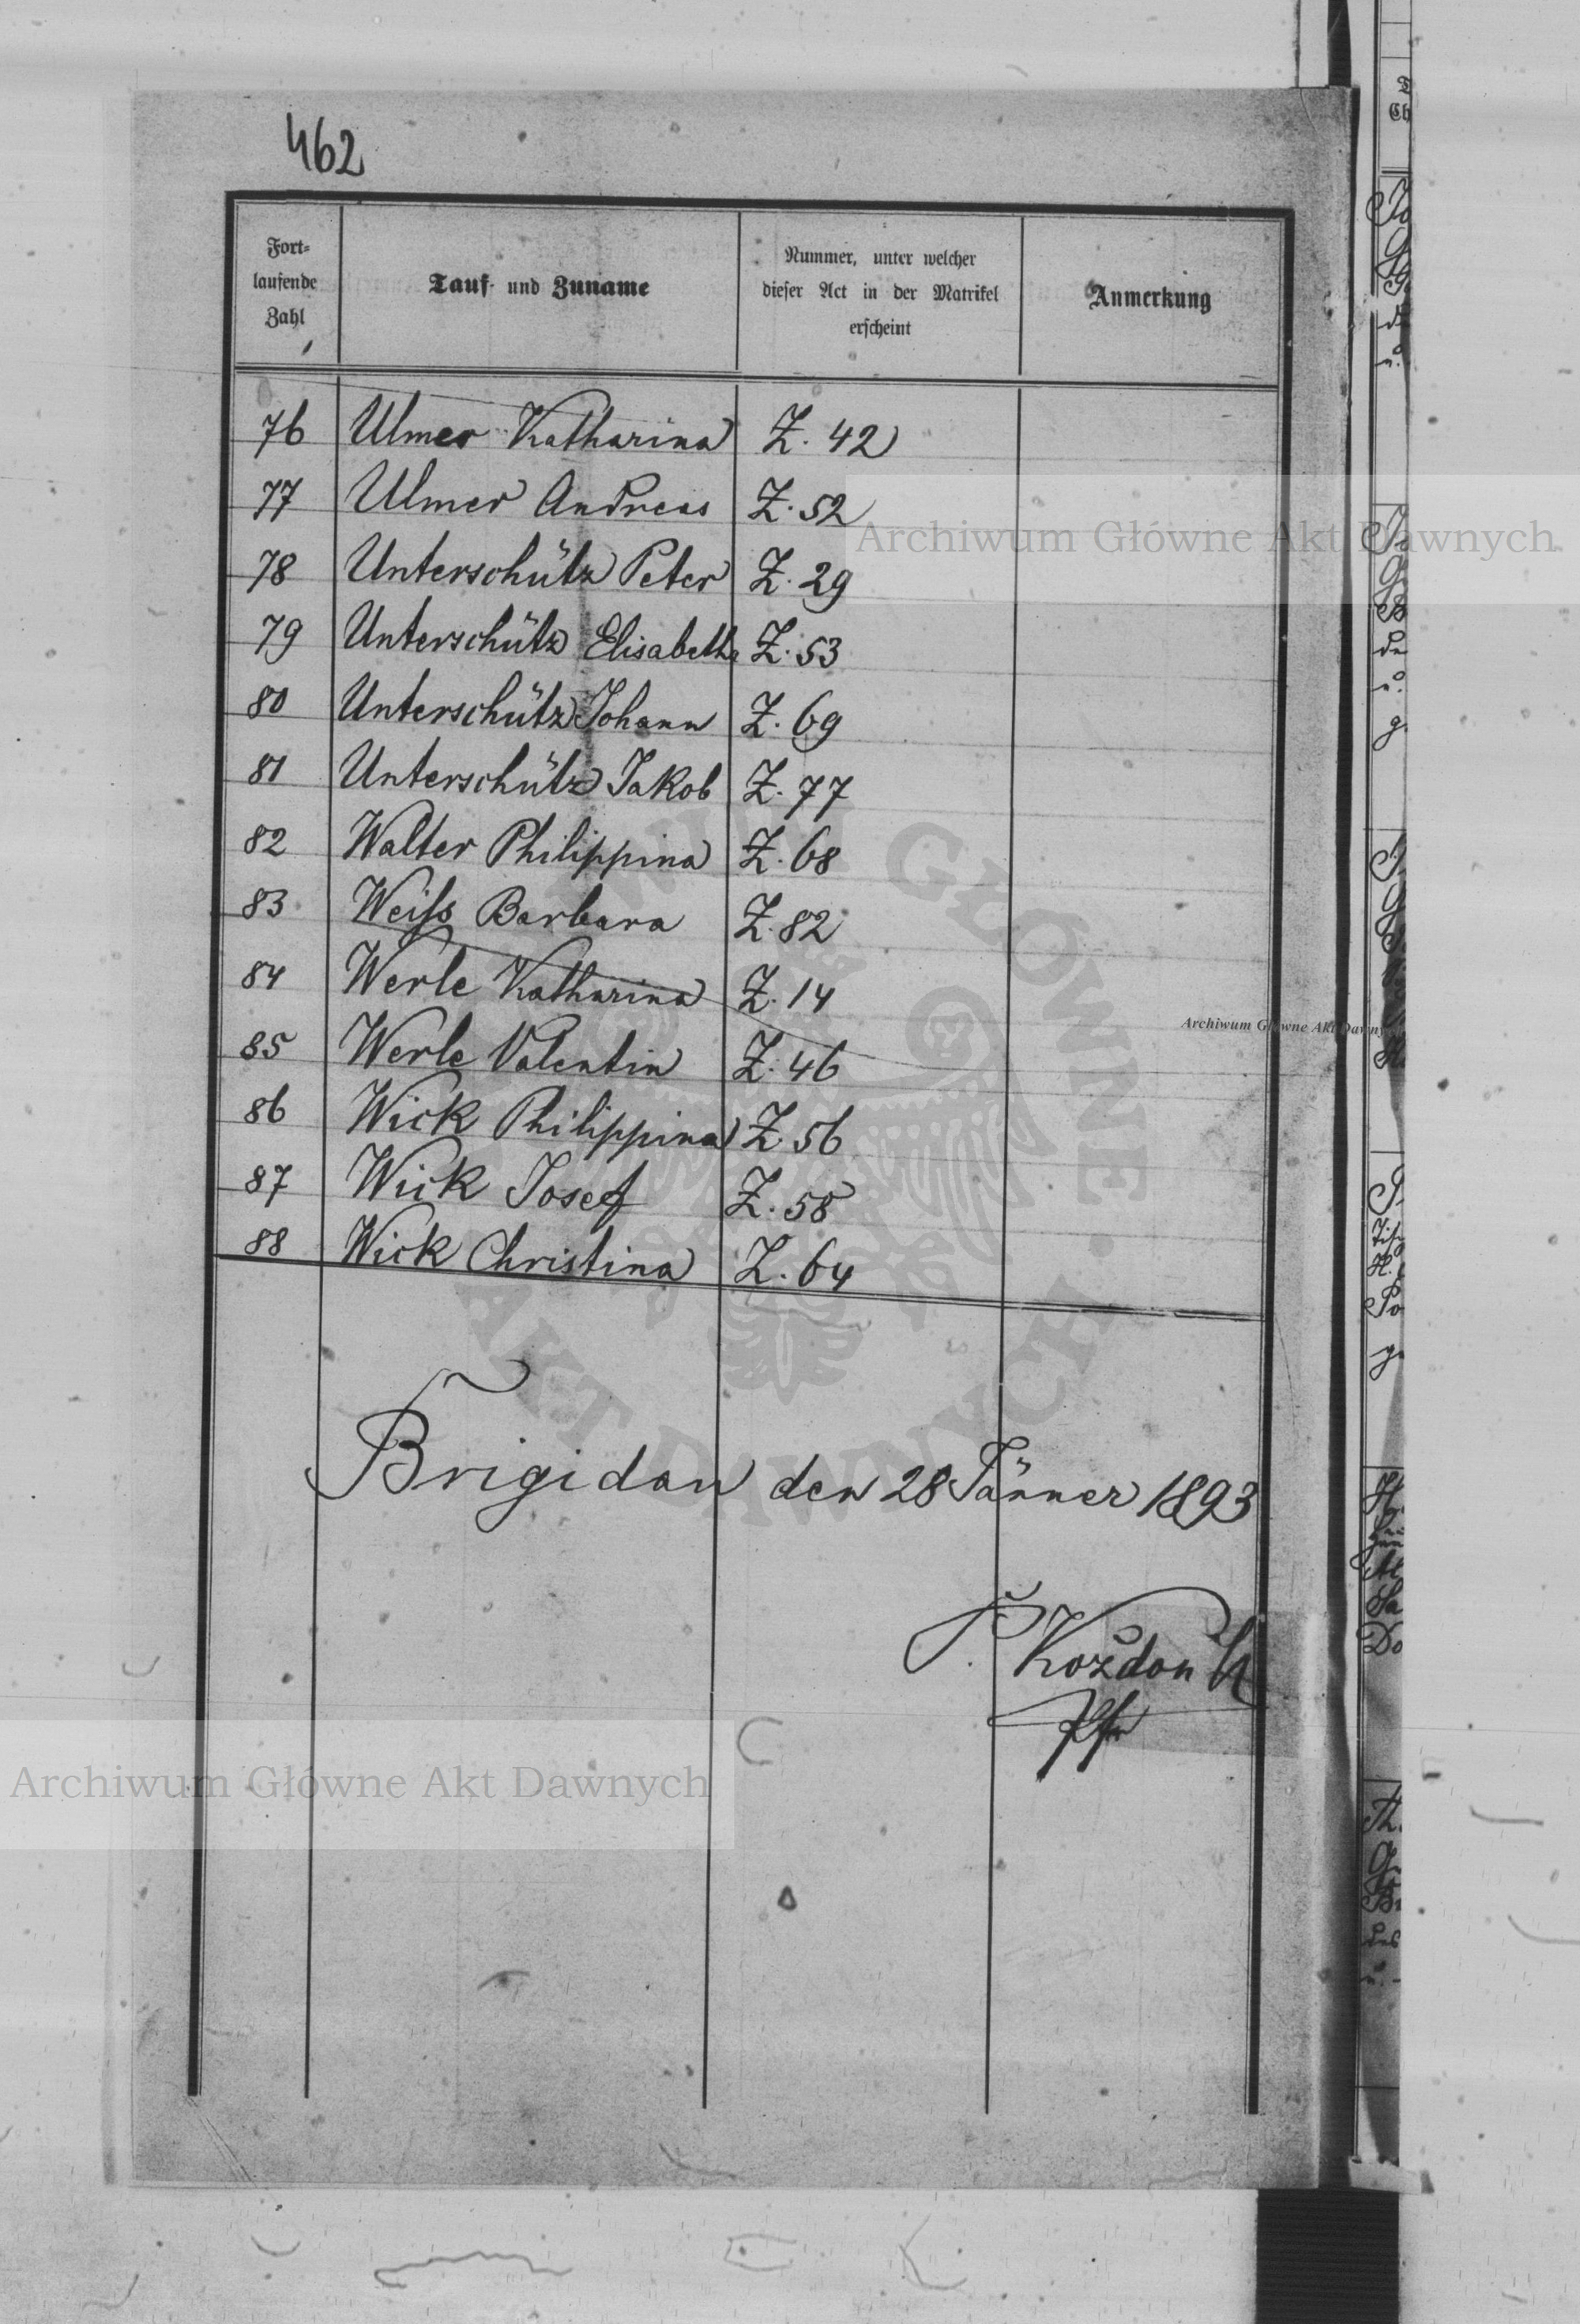 462
Fort-
laufende
Zahl
Tauf- und Zuname
Nummer, unter welcher
dieser Act in der Matrikel
erscheint
Anmerkung
76 Ulmer Katharina Z. 42
77 Ulmer Andreas Z. 52
78 Unterschütz Peter Z. 29
79 Unterschütz Elisabetha Z. 53
80 Unterschütz Johann Z. 69
81 Unterschütz Jakob Z. 77
82 Walter Philippina Z. 68
83 Weiſs Barbara Z. 82
84 Werle Katharina Z. 14
85 Werle Valentin Z. 46
86 Wick Philippina Z. 56
87 Wick Josef Z. 58
88 Wick Christina Z. 64
Brigidau den 28 Jänner 1893
Kozdon
Pfr
Archiwum Główne Akt Dawnych
Archiwum Główne Akt Dawnych
Archiwum Główne Akt Dawnych
GŁÓWNE
AKT DAWNYCH